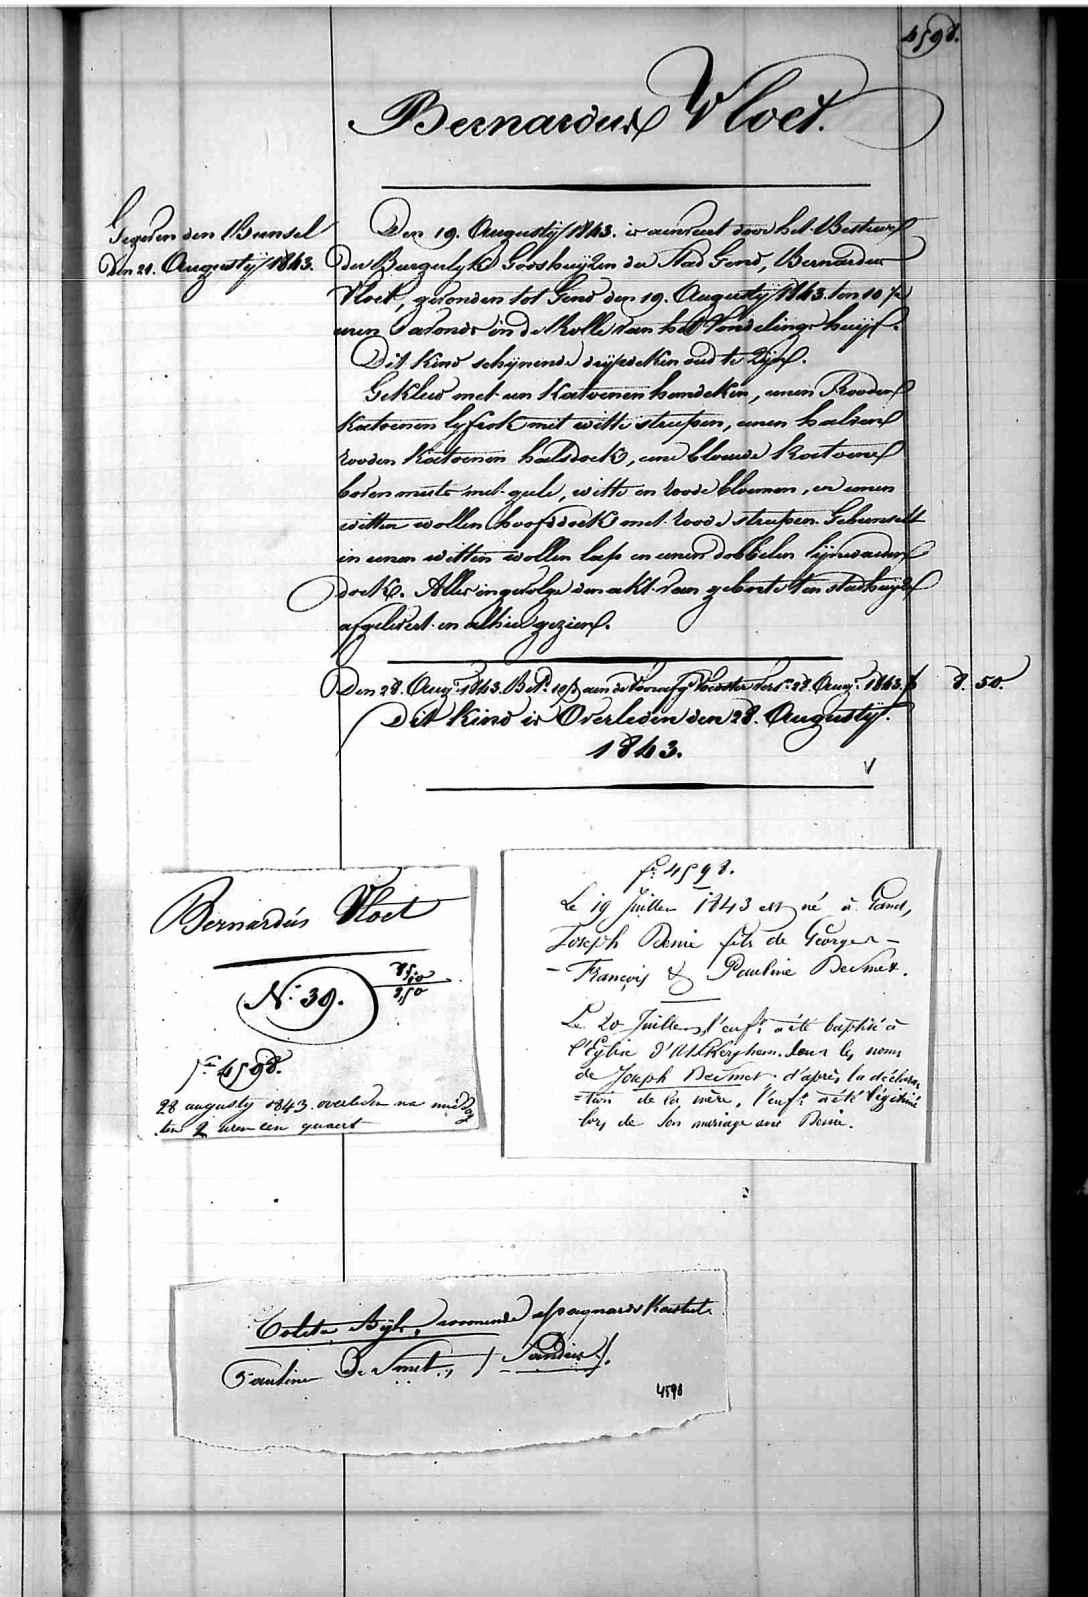 4598.
Bernardus Vloet.
Gegeven den Bunsel
Den 21. Augustij 1843.
Den 19. Augustij 1843. is aenveert door het Bestuer
der Burgerlyke Godshuyzen der Stad Gend, Bernardus
Vloet, gevonden tot Gend den 19. Augustij 1843. ten 10 ½
uren s'avonds in de Rolle van het Vondelingshuijs.
Dit kind schijnende drij weken oud te zijn.
Gekleed met een Katoenen hemdeken, eenen Rooden
Katoenen lyfrok met witte streepen, eenen halven
rooden Katoenen halsdoek, eene blauwe Katoenen
boven muts met geele, witte en roode bloemen, en eenen
witten wollen hoofddoek met roode streepen. Gebunselt
in eenen witten wollen lap en eenen dobbelen lijnwaeden
doek. Alles ingevolge den akt van geboorte ten stadhuyze
afgelevert en alhier gezien.
Den 28. Augt. 1843. Bet. 10 aen de Voedster 28 Augt. 1843. f 8. 50.
Dit Kind is Overleden den 28. Augustij.
1843.
V
Bernardus Vloet
N. 39.
8,50
fo. 4598.
28 augusty 1843 overleden na middag
ten 2 uren een quaert
fo. 4598.
Le 19 Juillet 1843 est né à Gand,
Joseph fils de Georges
François & Pauline De Smet.
Le 20 Juillet l'enft. a été baptisé à
l'Eglise d'Akkerghem, sous les noms
de Joseph De Smet d'après la déclara
=tion de la mère, l'enft. a été légitimé
lors de son mariage avec
Colete Byl, wonende spagnards Kasteel
Pauline De Smet
4598